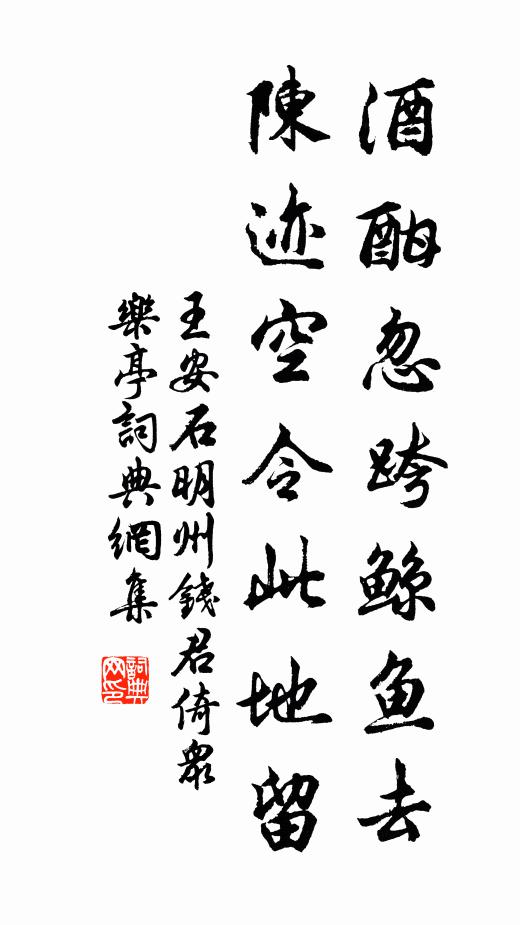 酒酣忽跨鲸鱼去
陳迹空令此地留
王安石明州錢君倚衆
樂亭詞典網集
詞典网印